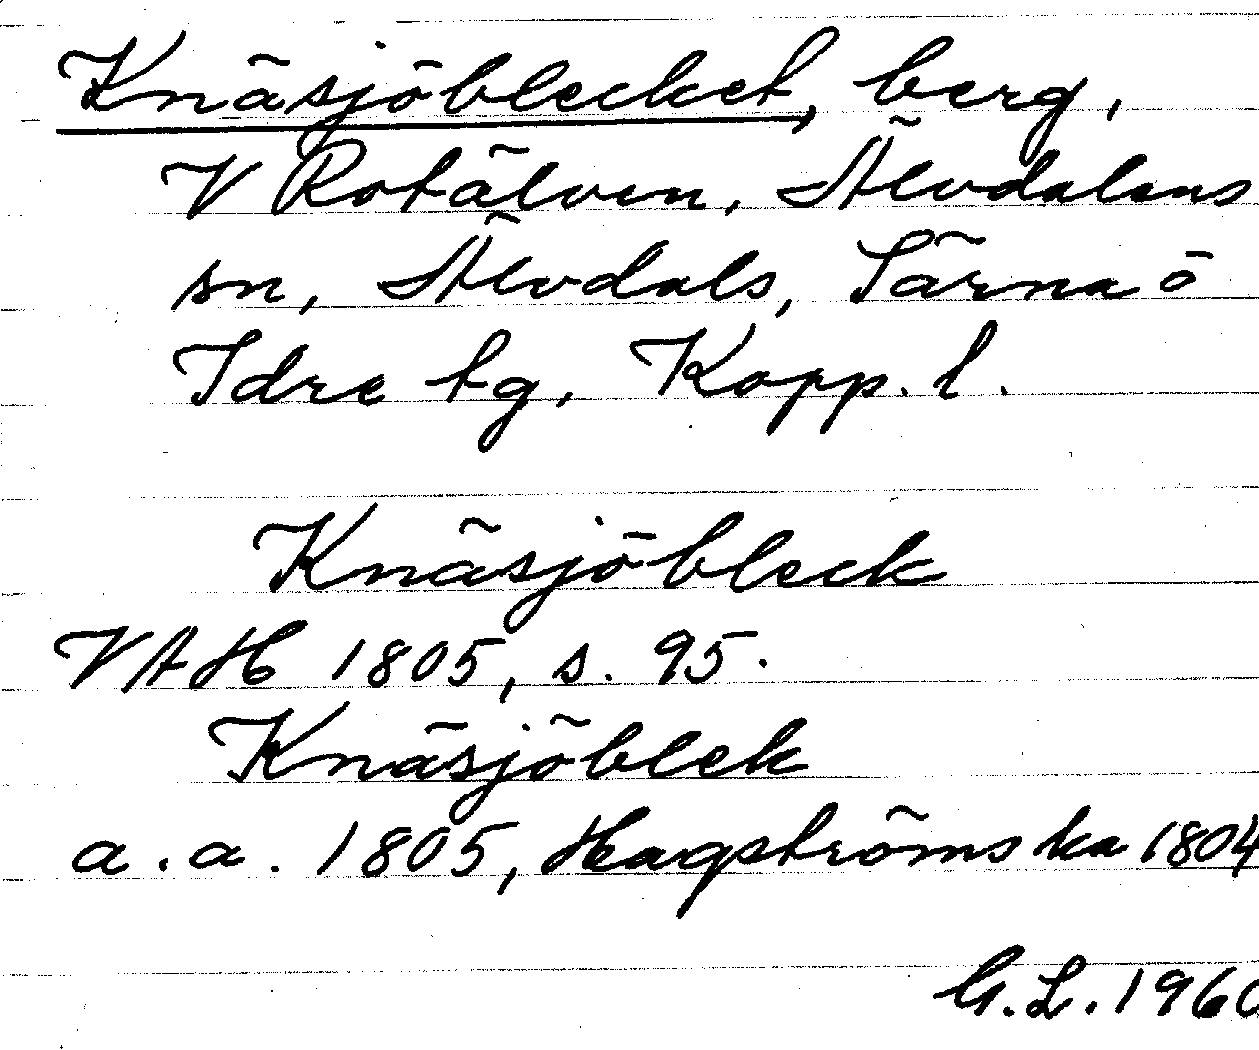 Knäsjöblecket, berg,
V Rotälven, Älvdalens
sn, Älvdals, Särna o
Idre tg, Kopp. l.
Knäsjöbleck
VAH 1805, s. 95.
Knäsjöblek
a.a. 1805, Hagströms ka 1804
G.L. 1960